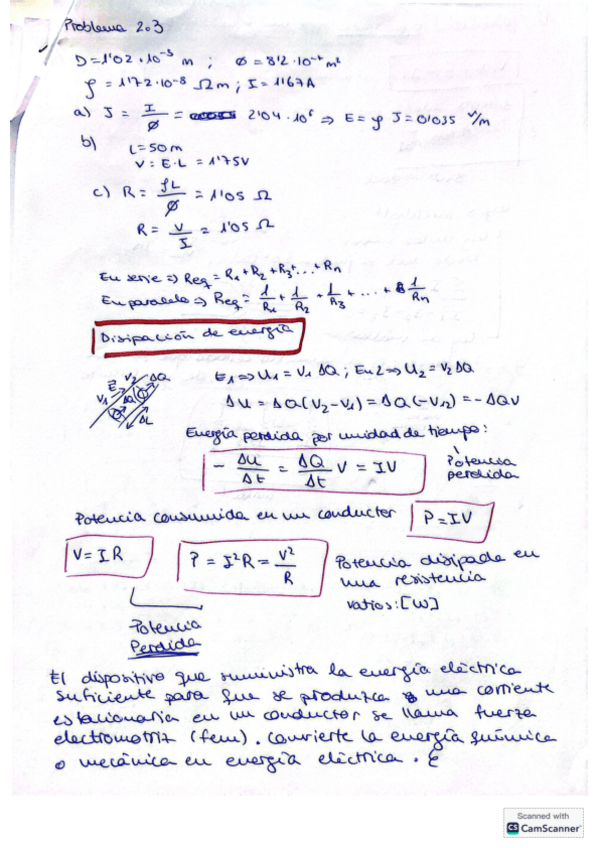 Problema 2.3
D = 1'02 · 10⁻³ m ; Ø = 8'2 · 10⁻⁷ m²
ρ = 1'72 · 10⁻⁸ Ω m ; I = 1'67 A
a) J = I/Ø = 2'04 · 10⁶ ⇒ E = ρ J = 0'035 V/m
b) L = 50 m
V = E · L = 1'75 V
c) R = ρL/Ø = 1'05 Ω
R = V/I = 1'05 Ω
En serie ⇒ Req = R₁ + R₂ + R₃ + ... + Rn
En paralelo ⇒ Req = 1/R₁ + 1/R₂ + 1/R₃ + ... + 1/Rn
Disipación de energía
V₁ E V₂ ΔQ ΔQ ΔL
E₁ ⇒ U₁ = V₁ ΔQ ; En 2 ⇒ U₂ = V₂ ΔQ
ΔU = ΔQ (V₂ - V₁) = ΔQ (-V₁₂) = - ΔQV
Energía perdida por unidad de tiempo:
- ΔU/Δt = ΔQ/Δt V = IV
Potencia perdida
Potencia consumida en un conductor P = IV
V = IR
P = I²R = V²/R
Potencia disipada en
una resistencia
vatios: [W]
Potencia
Perdida
El dispositivo que suministra la energía eléctrica
suficiente para que se produzca una corriente
estacionaria en un conductor se llama fuerza
electromotriz (fem). Convierte la energía química
o mecánica en energía eléctrica. E
Scanned with
CS CamScanner